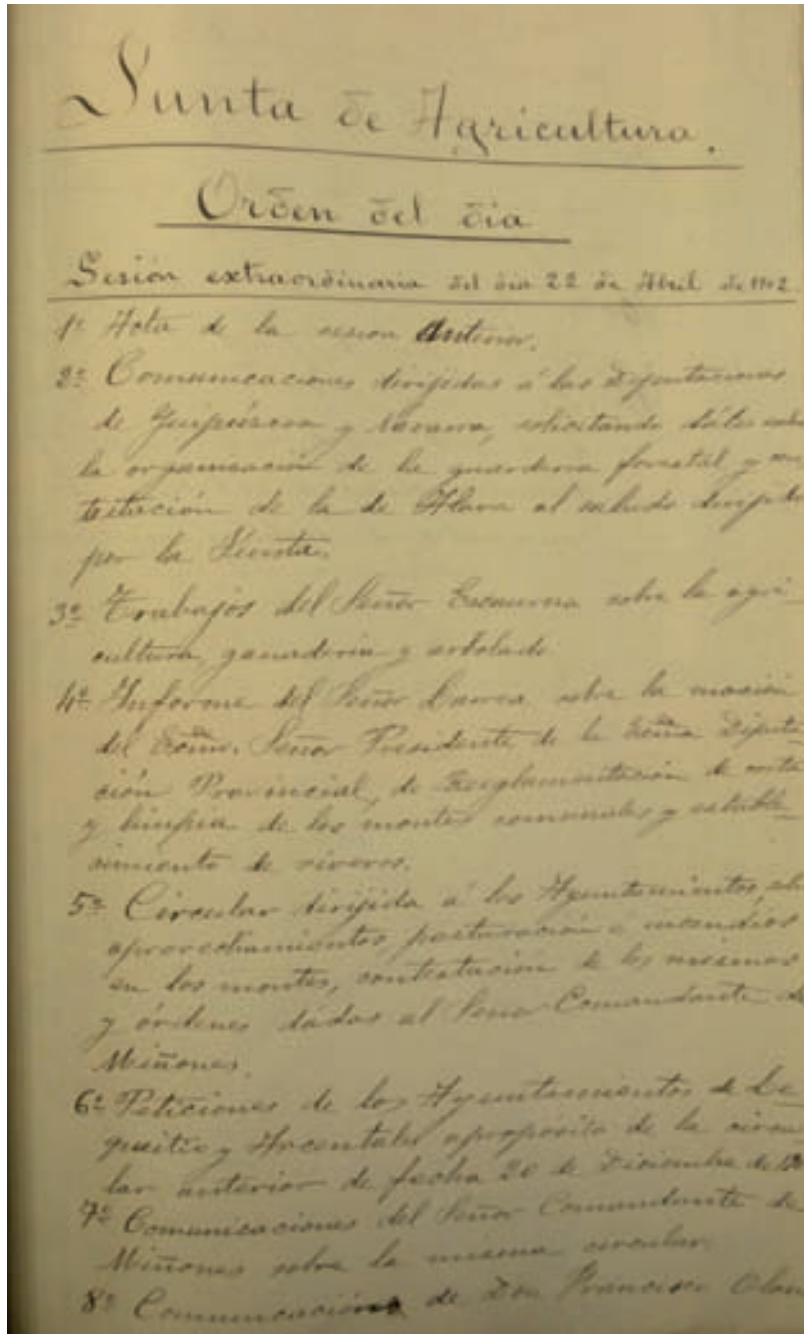 Junta de Agricultura.
Orden del dia
Sesión extraordinaria del dia 22 de Abril de 1902.
1º Acta de la sesion anterior.
2º Comunicaciones dirijidas á las Diputaciones
de Guipúzcoa y Navarra, solicitando dátos sobre
la organisación de la guarderia forestal y con
testación de la de Alava al saludo dirijido
por la Junta.
3º Trabajos del Señor Escauriza sobre la agri-
cultura, ganaderia y arbolado.
4º Informe del Señor sobre la moción
del Exmo. Señor Presidente de la Exma Diputa-
ción Provincial, de Reglamentación de corta
y limpia de los montes comunales y estable-
cimiento de viveros.
5º Circular dirijida á los Ayuntamientos, sbre
aprovechamientos, pasturación é incendios
en los montes, contestación de los mismos
y órdenes dadas al Señor Comandante de
Miñones.
6º Peticiones de los Ayuntamientos de Le-
queitio y Arcentales aproposito de la circu
lar anterior de fecha 20 de Diciembre de
7º Comunicaciones del Señor Comandante de
Miñones sobre la misma circular.
8º Comunicación de Don Francisco